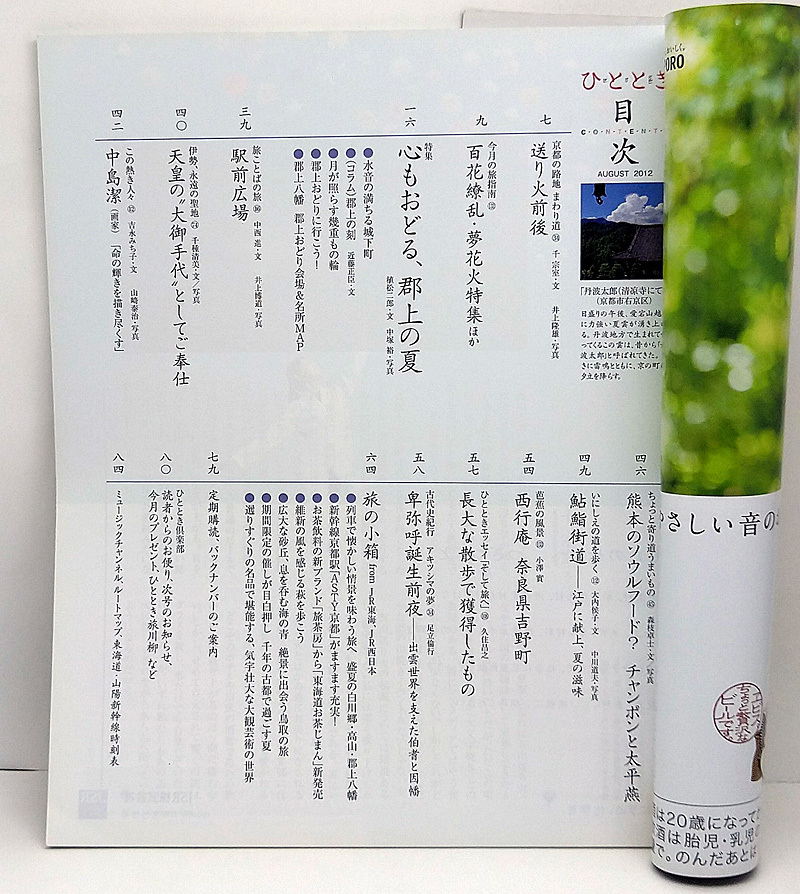 ひととき
目次
C・O・N・T・E・N・T
AUGUST 2012
「丹波太郎(清凉寺にて
(京都市右京区)
日盛りの午後、愛宕山越
に力強い夏雲が湧き上
る。丹波地方で生まれて
ってくるこの雲は、昔から「
波太郎」と呼ばれてきた。
きに雷鳴とともに、京の町
夕立を降らす。
七
京都の路地 まわり道
千 宗室・文 井上隆雄・写真
送り火前後
九
今月の旅指南
百花繚乱・夢花火特集ほか
一六
特集
心もおどる、郡上の夏
植松二郎・文 中塚 裕・写真
●水音の満ちる城下町
●(コラム)郡上の刻 近藤正臣・文
●月が照らす幾重もの輪
●郡上おどりに行こう!
●郡上八幡 郡上おどり会場&名所MAP
三九
旅ことばの旅
中西 進・文 井上博道・写真
駅前広場
四〇
伊勢・永遠の聖地
千種清美・文/写真
天皇の“大御手代”としてご奉仕
四二
この熱き人々
吉永みち子・文 山崎泰治・写真
中島潔(画家)「命の輝きを描き尽くす」
四六
ちょっと寄り道うまいもの
森枝卓士・文/写真
熊本のソウルフード? チャンポンと太平燕
四九
いにしえの道を歩く
大内侯子・文 中川道夫・写真
鮎鮨街道——江戸に献上、夏の滋味
五四
芭蕉の風景
小澤 實
西行庵 奈良県吉野町
五七
ひとときエッセイ「そして旅へ」
久住昌之
長大な散歩で獲得したもの
五八
古代史紀行 アキツシマの夢
足立倫行
卑弥呼誕生前夜——出雲世界を支えた伯耆と因幡
六四
旅の小箱 from JR東海・JR西日本
●列車で懐かしい情景を味わう旅へ 盛夏の白川郷・高山・郡上八幡
●新幹線京都駅「ASTY京都」がますます充実!
●お茶飲料の新ブランド「旅茶房」から「東海道お茶じまん」新発売
●維新の風を感じる萩を歩こう
●広大な砂丘、息を呑む海の青 絶景に出会う鳥取の旅
●期間限定の催しが目白押し 千年の古都で過ごす夏
●選りすぐりの名品で堪能する、気宇壮大な大観芸術の世界
七九
定期購読、バックナンバーのご案内
八〇
ひととき倶楽部
読者からのお便り、次号のお知らせ、
今月のプレゼント、ひととき旅川柳 など
八四
ミュージックチャンネル、ルートマップ、東海道・山陽新幹線時刻表
PORO
やさしい音の
エビス
ちょっと贅沢な
ビールです。
酒は20歳になって
酒は胎児・乳児の
で。のんだあとは